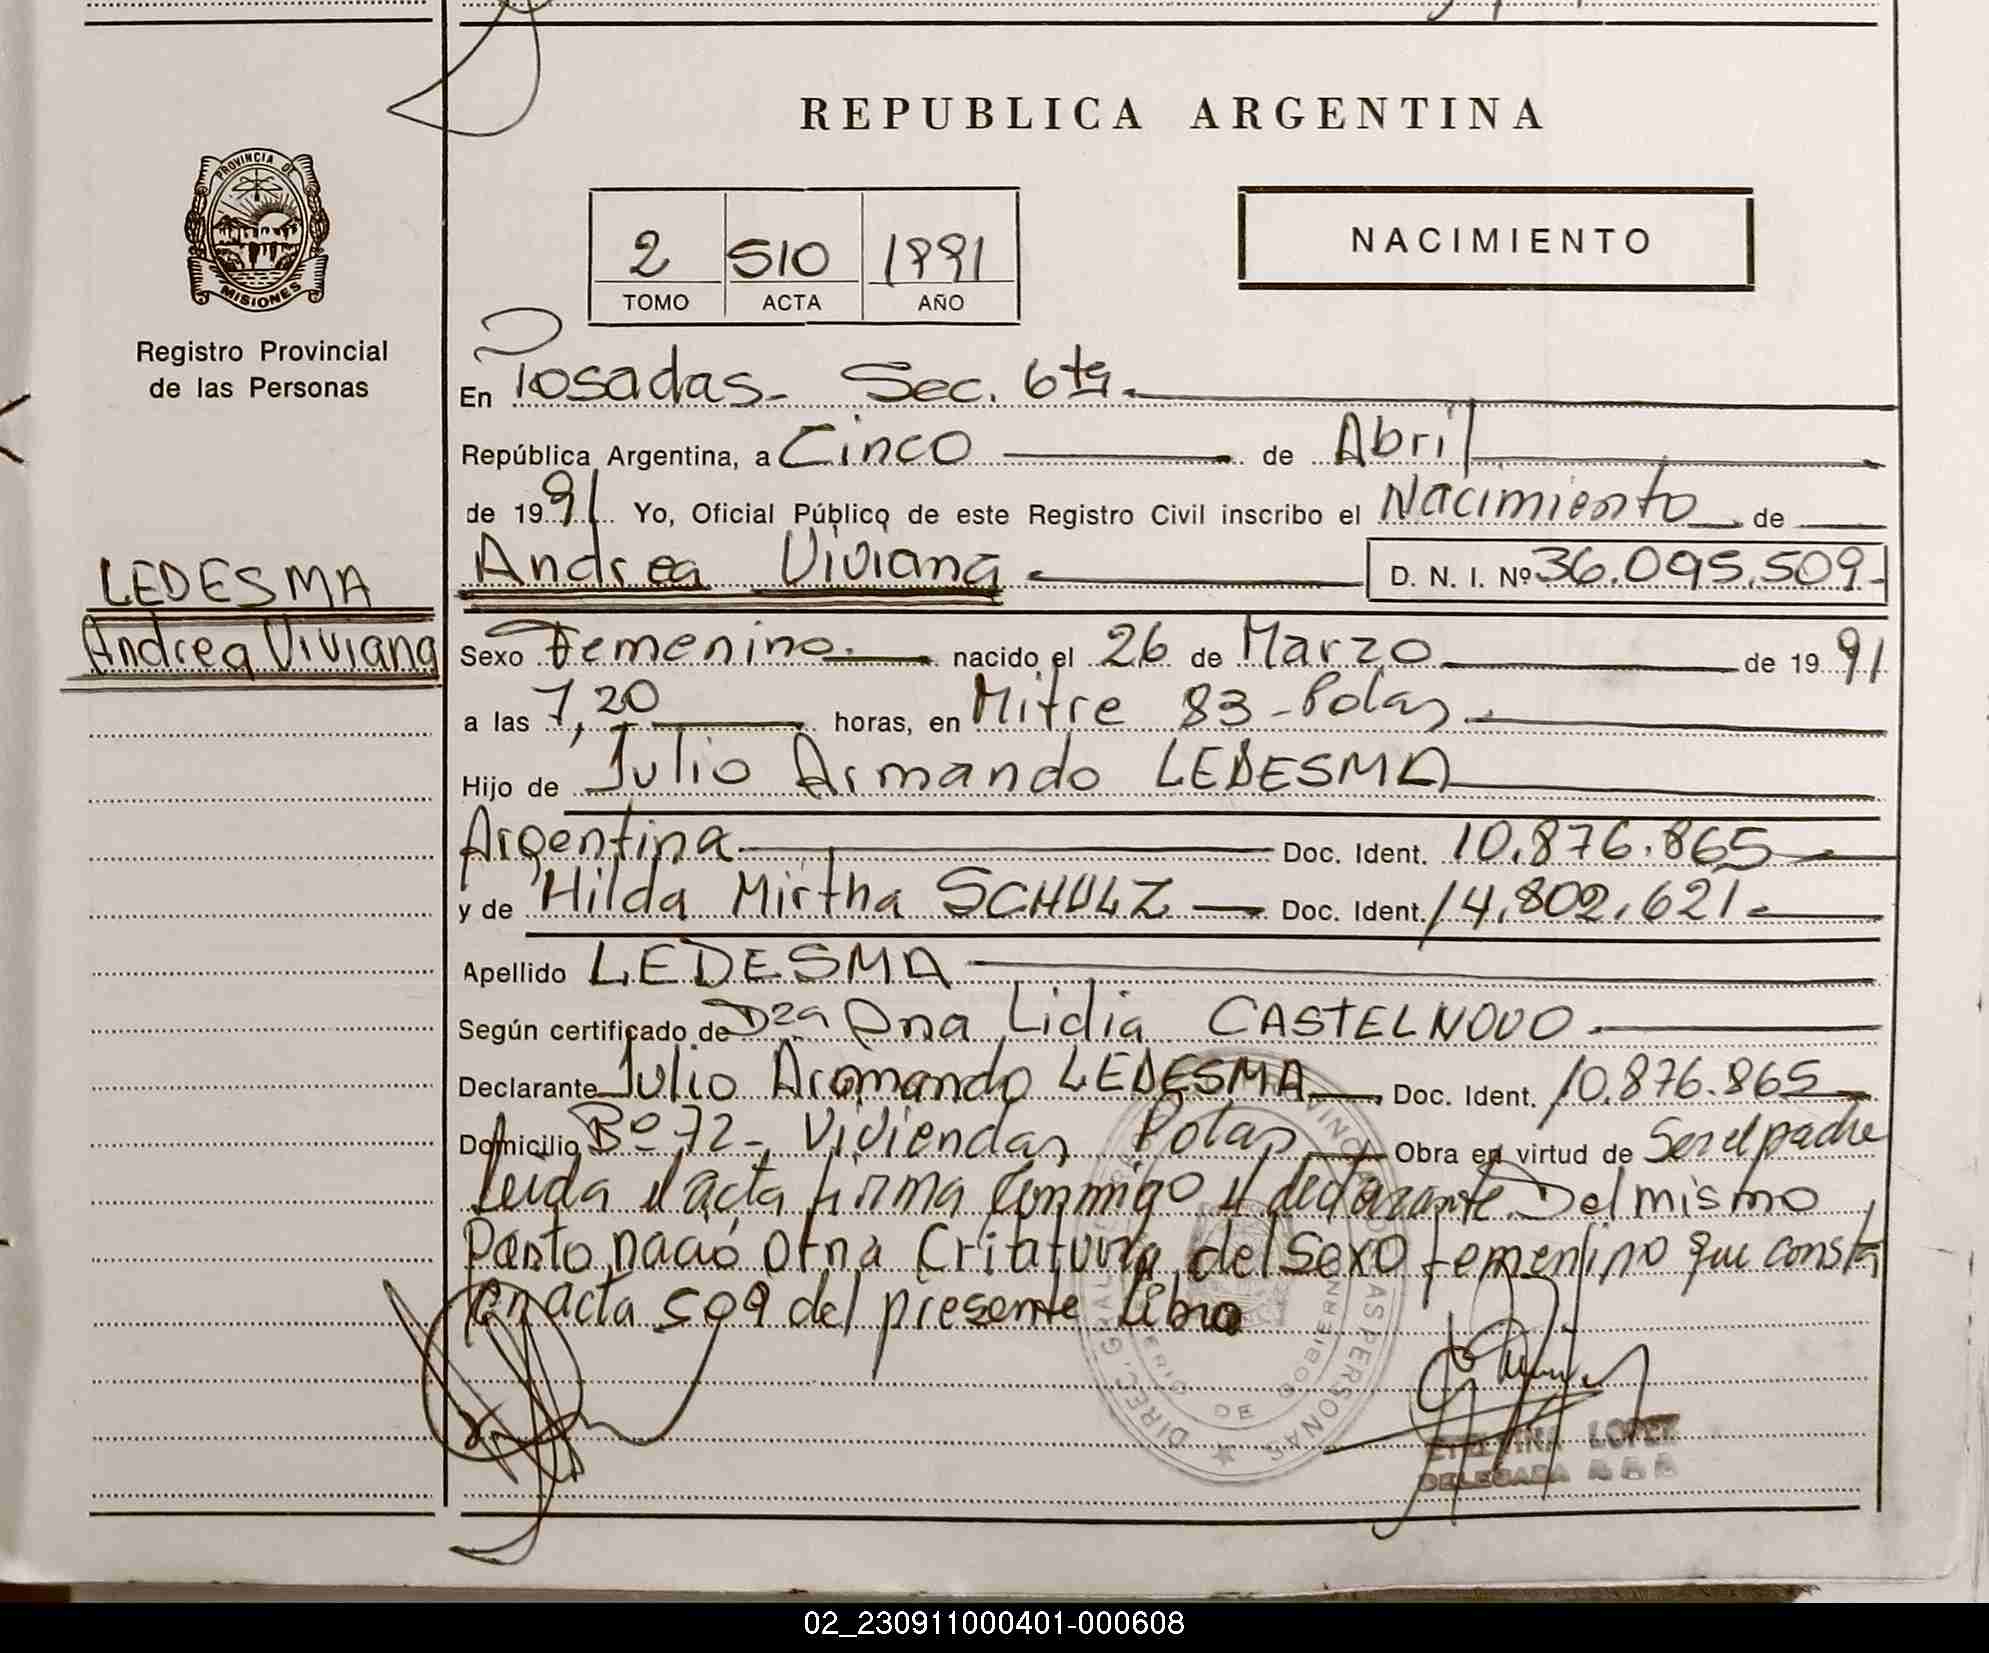 REPUBLICA ARGENTINA
PROVINCIA DE
MISIONES
Registro Provincial
de las Personas
2 510 1991
TOMO ACTA AÑO
NACIMIENTO
En Posadas - Sec. 6ta.
República Argentina, a Cinco de Abril
de 1991 Yo, Oficial Público de este Registro Civil inscribo el Nacimiento de
Andrea Viviana D. N. I. Nº 36.095.509-
LEDESMA
Andrea Viviana
Sexo Femenino. nacido el 26 de Marzo de 1991
a las 7,20 horas, en Mitre 83 - Pdas.
Hijo de Julio Armando LEDESMA
Argentina Doc. Ident. 10.876.865
y de Hilda Mirtha SCHULZ Doc. Ident. 14.802.621.
Apellido LEDESMA
Según certificado de Dza Ana Lidia CASTELNOVO.
Declarante Julio Armando LEDESMA Doc. Ident. 10.876.865
Domicilio Bº 72 - Viviendas Pdas Obra en virtud de Ser el padre
Leida el acta firma conmigo el declarante. Del mismo
Parto nació otra Criatura del Sexo femenino que consta
en acta 509 del presente libro
DE LAS PERSONAS
ETELVINA LOPEZ
DELEGADA
02_230911000401-000608